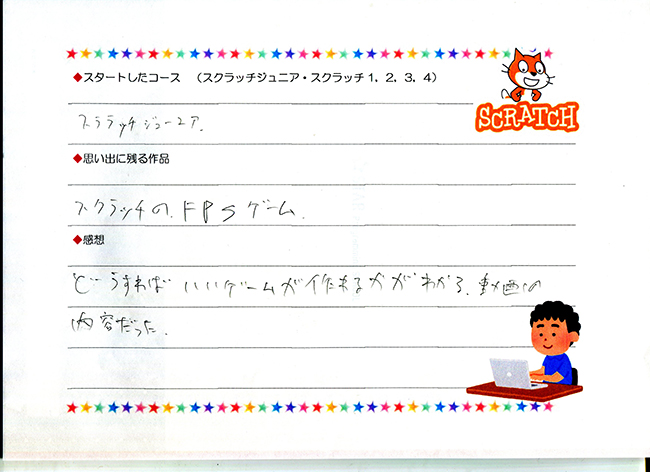 ◆スタートしたコース （スクラッチジュニア・スクラッチ１，２，３，４）
SCRATCH
スクラッチジューニア．
◆思い出に残る作品
スクラッチの．FPSゲーム．
◆感想
どうすればいいゲームが作れるかがわかる．動画の
内容だった．